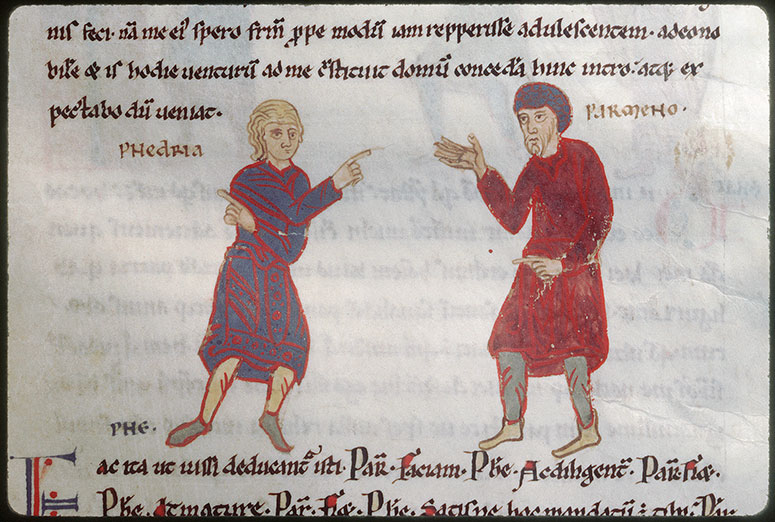 nis feci. nā me ei' spero frīm ꝓpe modū iam repperisse adulescentem. adeono
bilē & is hodie venturū ad me cstituit domū conceda hinc intro. atq; ex
pectabo dū veniat.
PHEDRIA PARMENO.
PHE.
Fac ita ut iussi deducant̄ isti. Par̄. Faciam. Phe. Ac diligent̄. Par̄. Fiet.
Phe. At mature. Par̄. Fiet. Phe. Satisne hoc mandatū ē tibi. Par̄